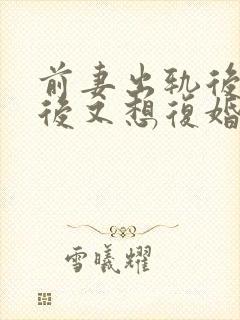 前妻出軌後
後又想復婚
雪曦耀